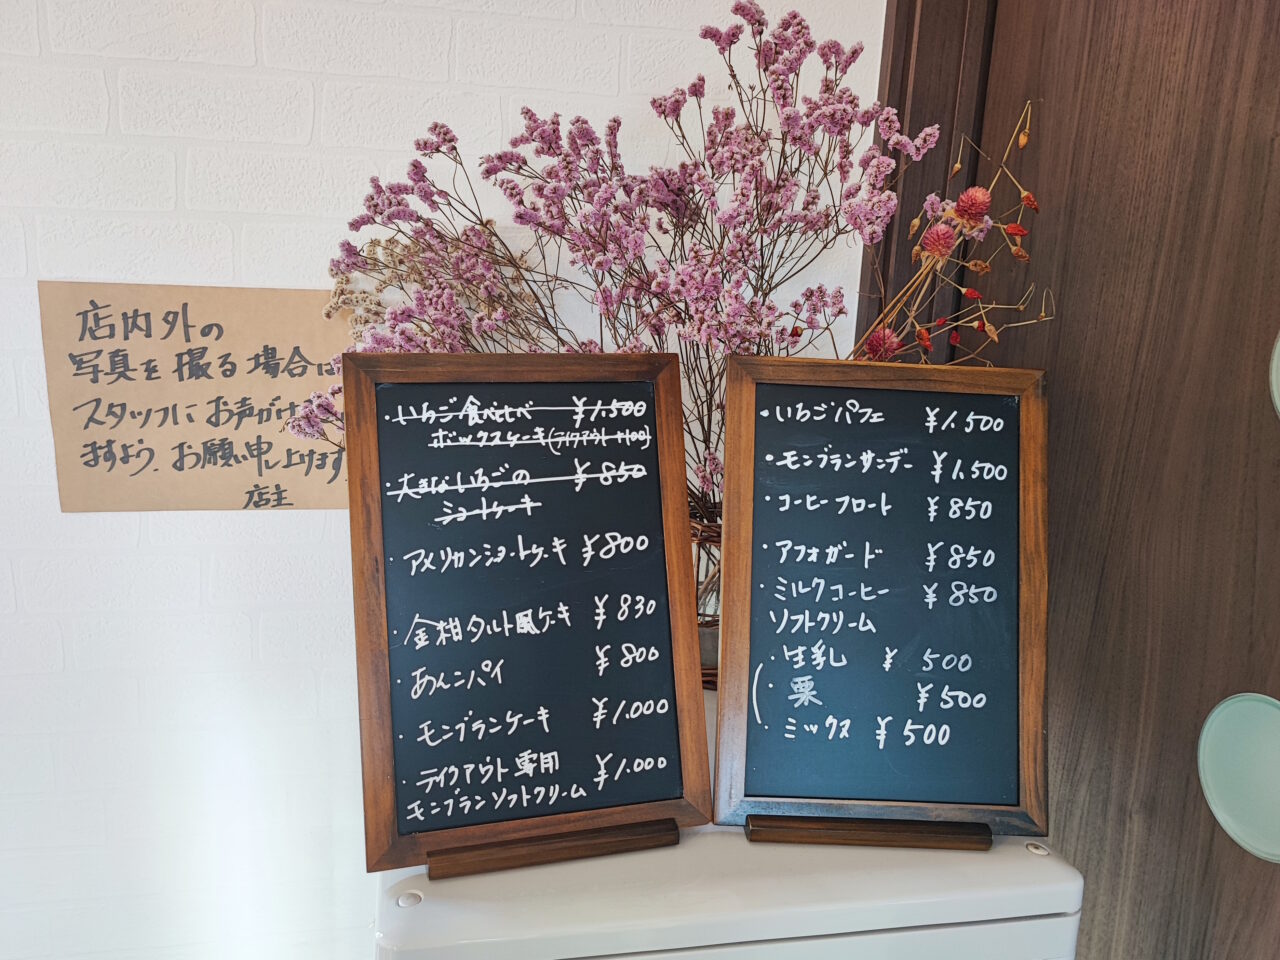 店内外の
写真を撮る場合は
スタッフにお声がけ
ますよう、お願い申し上げます
店主
・いちご食べ比べ ¥1.500
ボックスケーキ(テイクアウト+100)
・大きないちごの ¥850
ショートケーキ
・アメリカンショートケーキ ¥800
・金柑タルト風ケーキ ¥830
・あんこパイ ¥800
・モンブランケーキ ¥1.000
・テイクアウト専用 ¥1.000
モンブランソフトクリーム
・いちごパフェ ¥1.500
・モンブランサンデー ¥1.500
・コーヒーフロート ¥850
・アフォガード ¥850
・ミルクコーヒー ¥850
ソフトクリーム
・生乳 ¥500
・栗 ¥500
・ミックス ¥500